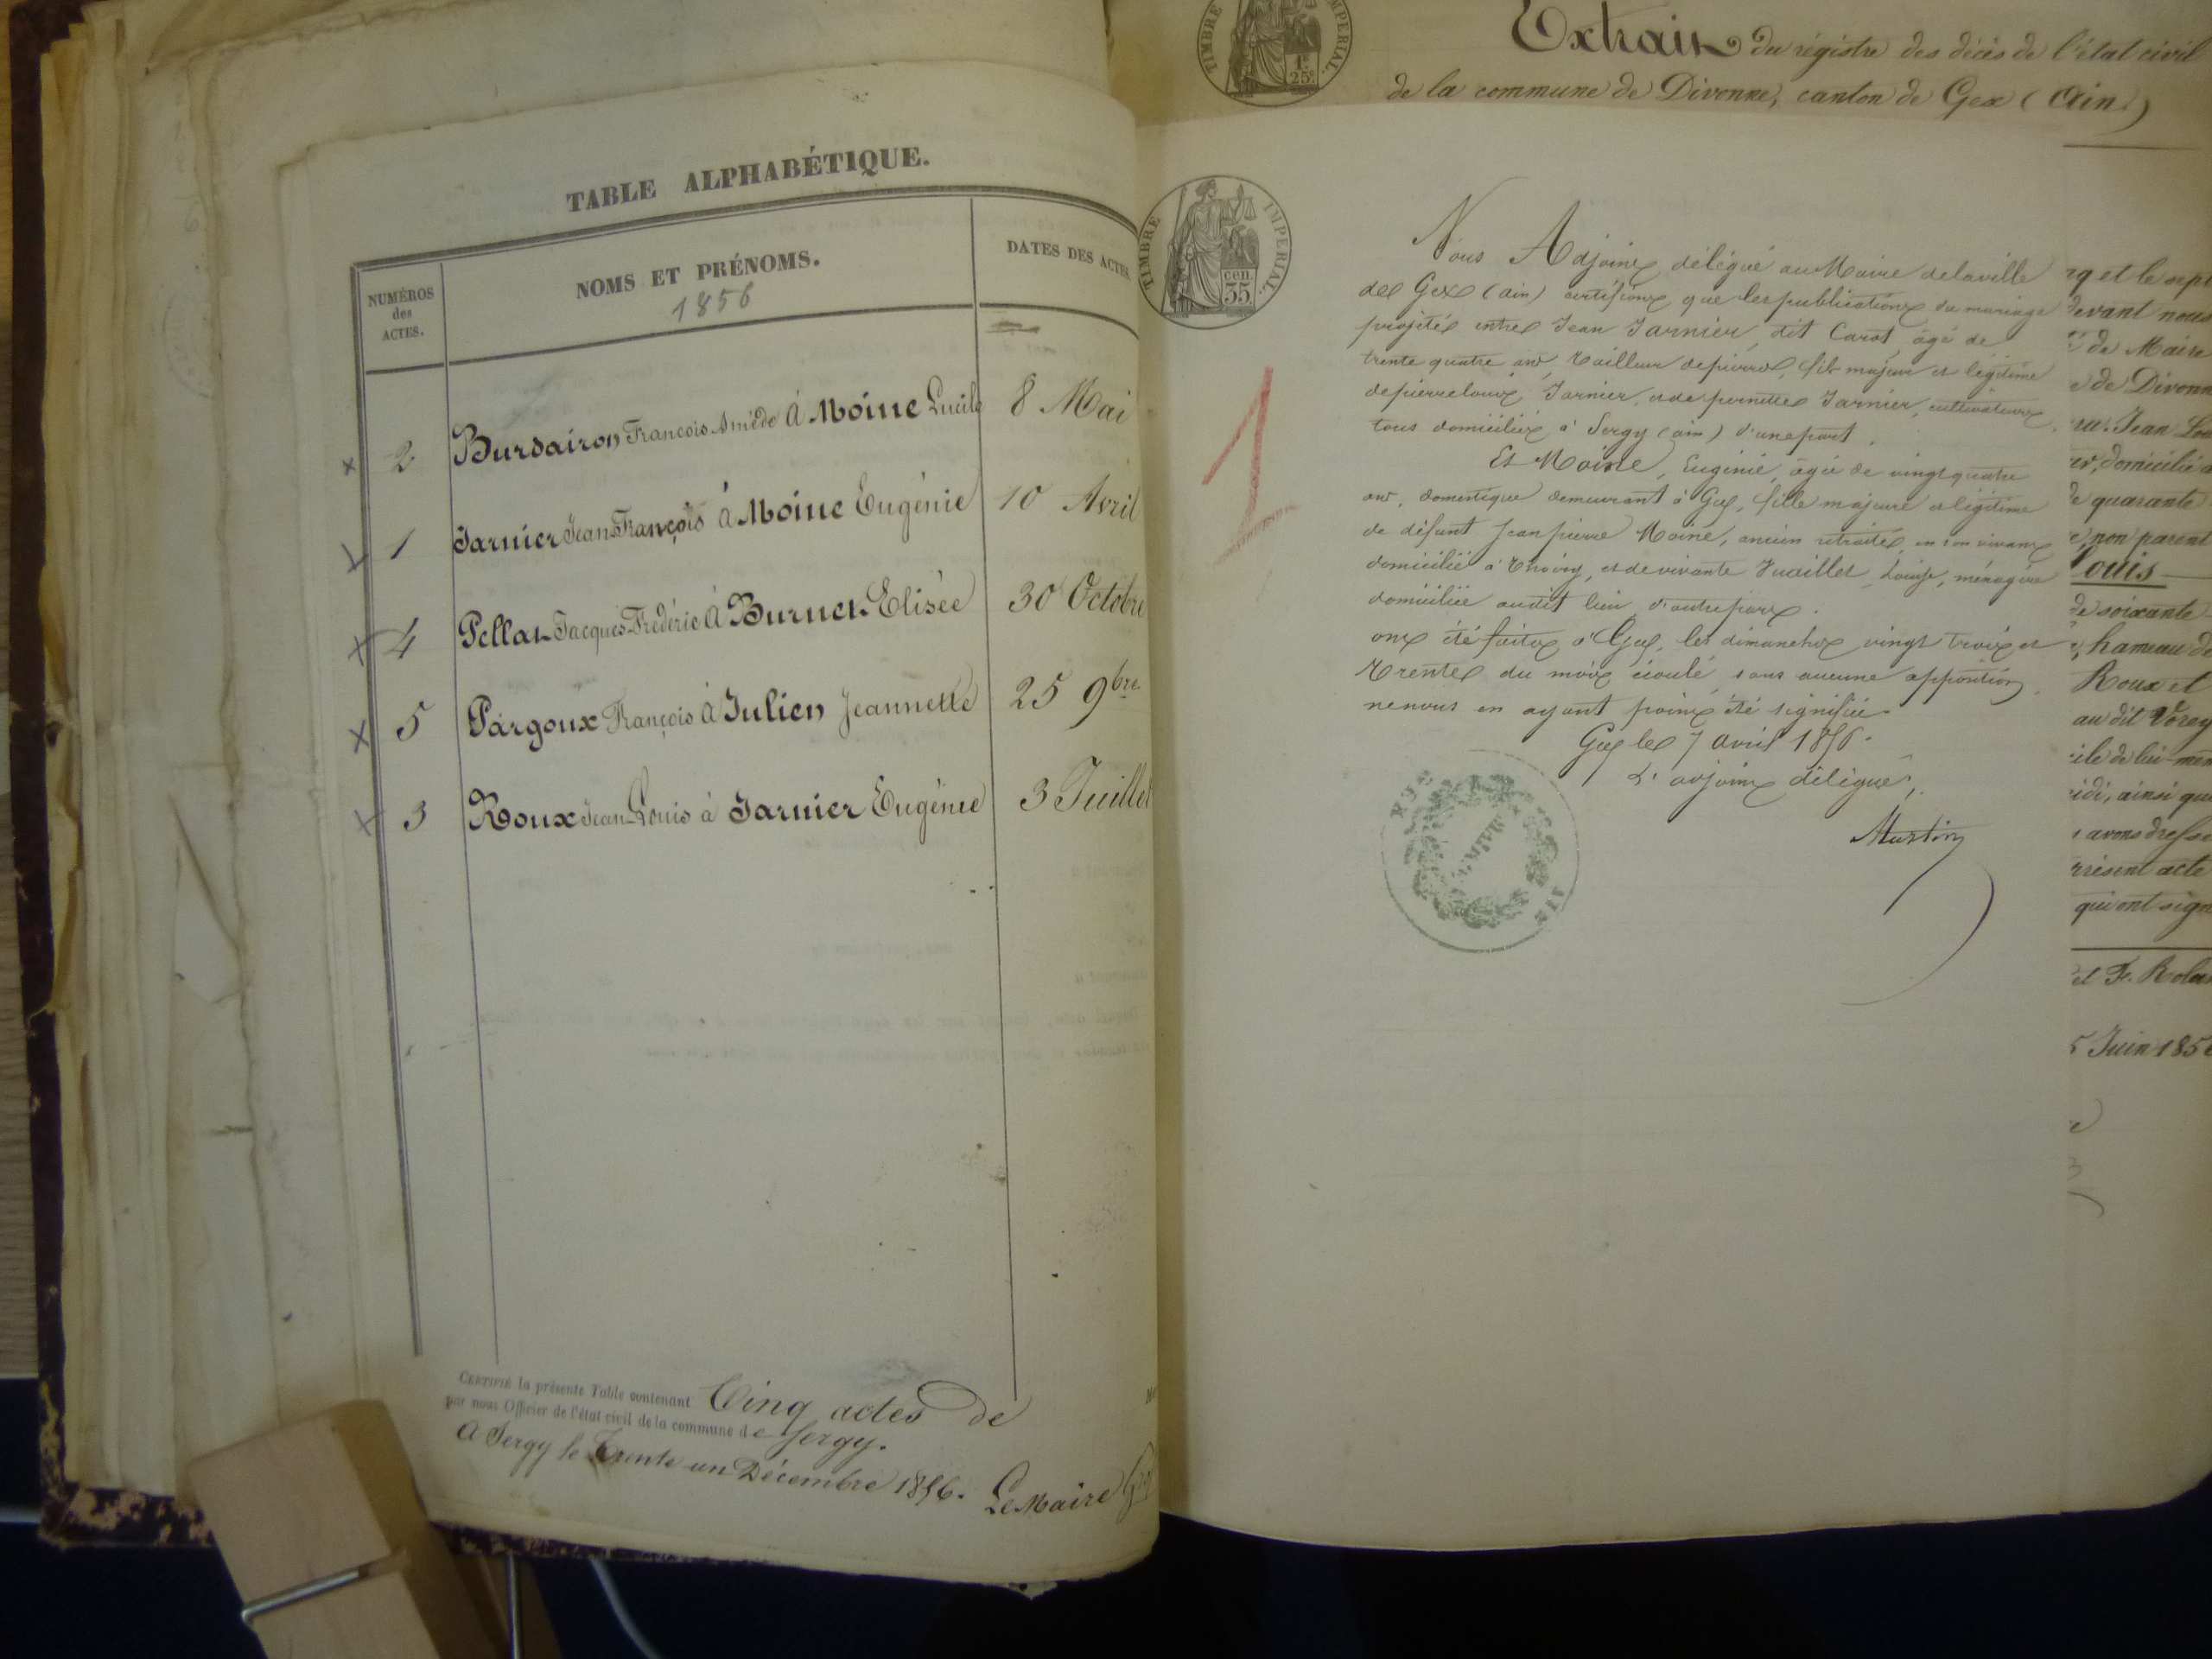 TABLE ALPHABÉTIQUE.
NUMÉROS des ACTES.
NOMS ET PRÉNOMS.
1856
DATES DES ACTES.
2 Burdairon François Amédé à Moine Lucile 8 Mai
1 Jarnier Jean François à Moine Eugénie 10 Avril
4 Pellat Jacques Frédéric à Burnet Elisée 30 Octobre
5 Pargoux François à Julien Jeannette 25 9bre
3 Roux Jean Louis à Jarnier Eugénie 3 Juillet
CERTIFIÉ la présente Table contenant Cinq actes de
par nous Officier de l'état civil de la commune de Sergy.
A Sergy le Trente un Décembre 1856. Le Maire
TIMBRE IMPERIAL.
1f. 25c.
Extrait du régistre des décès de l'état civil
de la commune de Divonne, canton de Gex (Ain)
TIMBRE IMPERIAL.
cen. 35
1
Nous Adjoint délégué au Maire de la ville
de Gex (ain) certifions que les publications du mariage
projeté entre Jean Jarnier, dit Carot, âgé de
trente quatre ans, tailleur de pierres, fils majeur et légitime
de pierre Jarnier, et de pernette Jarnier, cultivateurs,
tous domiciliés à Sergy (ain) d'une part.
Et Moine, Eugénie, âgée de vingt quatre
ans, domestique demeurant à Gex, fille majeure et légitime
de défunt Jean pierre Moine, ancien retraité, en son vivant
domicilié à Thoiry, et de vivante Louise, ménagère
domiciliée audit lieu, d'autre part.
ont été faites à Gex, les dimanches vingt trois et
trente du mois écoulé, sans aucune opposition,
ne nous en ayant point été signifiée.
Gex le 7 avril 1856.
L'adjoint délégué,
Martin
MAIRIE
et le sept
devant nous
de Maire
de Divonne
Jean Lou
domicilié à
de quarante
non parent
Louis
de soixante
hameau de
Roux et
au dit
ainsi que
avons dressé
présent acte
qui ont sign
et F. Rolan
5 Juin 1856